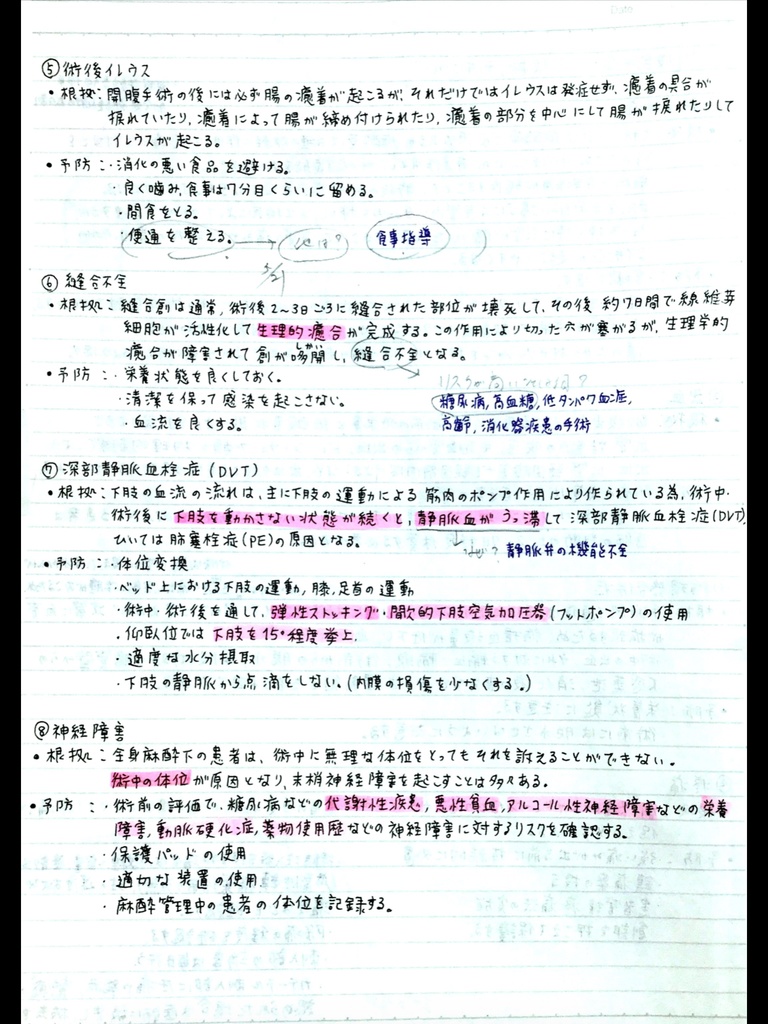 ⑤ 術後イレウス
・根拠：開腹手術の後には必ず腸の癒着が起こるが、それだけではイレウスは発症せず、癒着の具合が
捩れていたり、癒着によって腸が締め付けられたり、癒着の部分を中心にして腸が捩れたりして
イレウスが起こる。
・予防：・消化の悪い食品を避ける。
・良く噛み、食事は7分目くらいに留める。
・間食をとる。
・便通を整える。→ 他は？ 食事指導
⑥ 縫合不全
・根拠：縫合創は通常、術後2~3日ごろに縫合された部位が壊死して、その後 約7日間で線維芽
細胞が活性化して生理的癒合が完成する。この作用により切った穴が塞がるが、生理学的
癒合が障害されて創が哆開し、縫合不全となる。
しかい
・予防：・栄養状態を良くしておく。
リスクが高いのは何？
・清潔を保って感染を起こさない。
糖尿病、高血糖、低タンパク血症、
・血流を良くする。
高齢、消化器疾患の手術
⑦ 深部静脈血栓症(DVT)
・根拠：下肢の血流の流れは、主に下肢の運動による筋肉のポンプ作用により作られている為、術中・
術後に下肢を動かさない状態が続くと、静脈血がうっ滞して深部静脈血栓症(DVT)、
ひいては肺塞栓症(PE)の原因となる。
静脈弁の機能不全
・予防：・体位変換
・ベッド上における下肢の運動、膝、足首の運動
・術中・術後を通して、弾性ストッキング・間欠的下肢空気加圧器(フットポンプ)の使用
・仰臥位では下肢を15°程度挙上。
・適度な水分摂取
・下肢の静脈から点滴をしない。(内膜の損傷を少なくする。)
⑧ 神経障害
・根拠：全身麻酔下の患者は、術中に無理な体位をとってもそれを訴えることができない。
術中の体位が原因となり、末梢神経障害を起こすことは多々ある。
・予防：・術前の評価で、糖尿病などの代謝性疾患、悪性貧血、アルコール性神経障害などの栄養
障害、動脈硬化症、薬物使用歴などの神経障害に対するリスクを確認する。
・保護パッドの使用
・適切な装置の使用
・麻酔管理中の患者の体位を記録する。